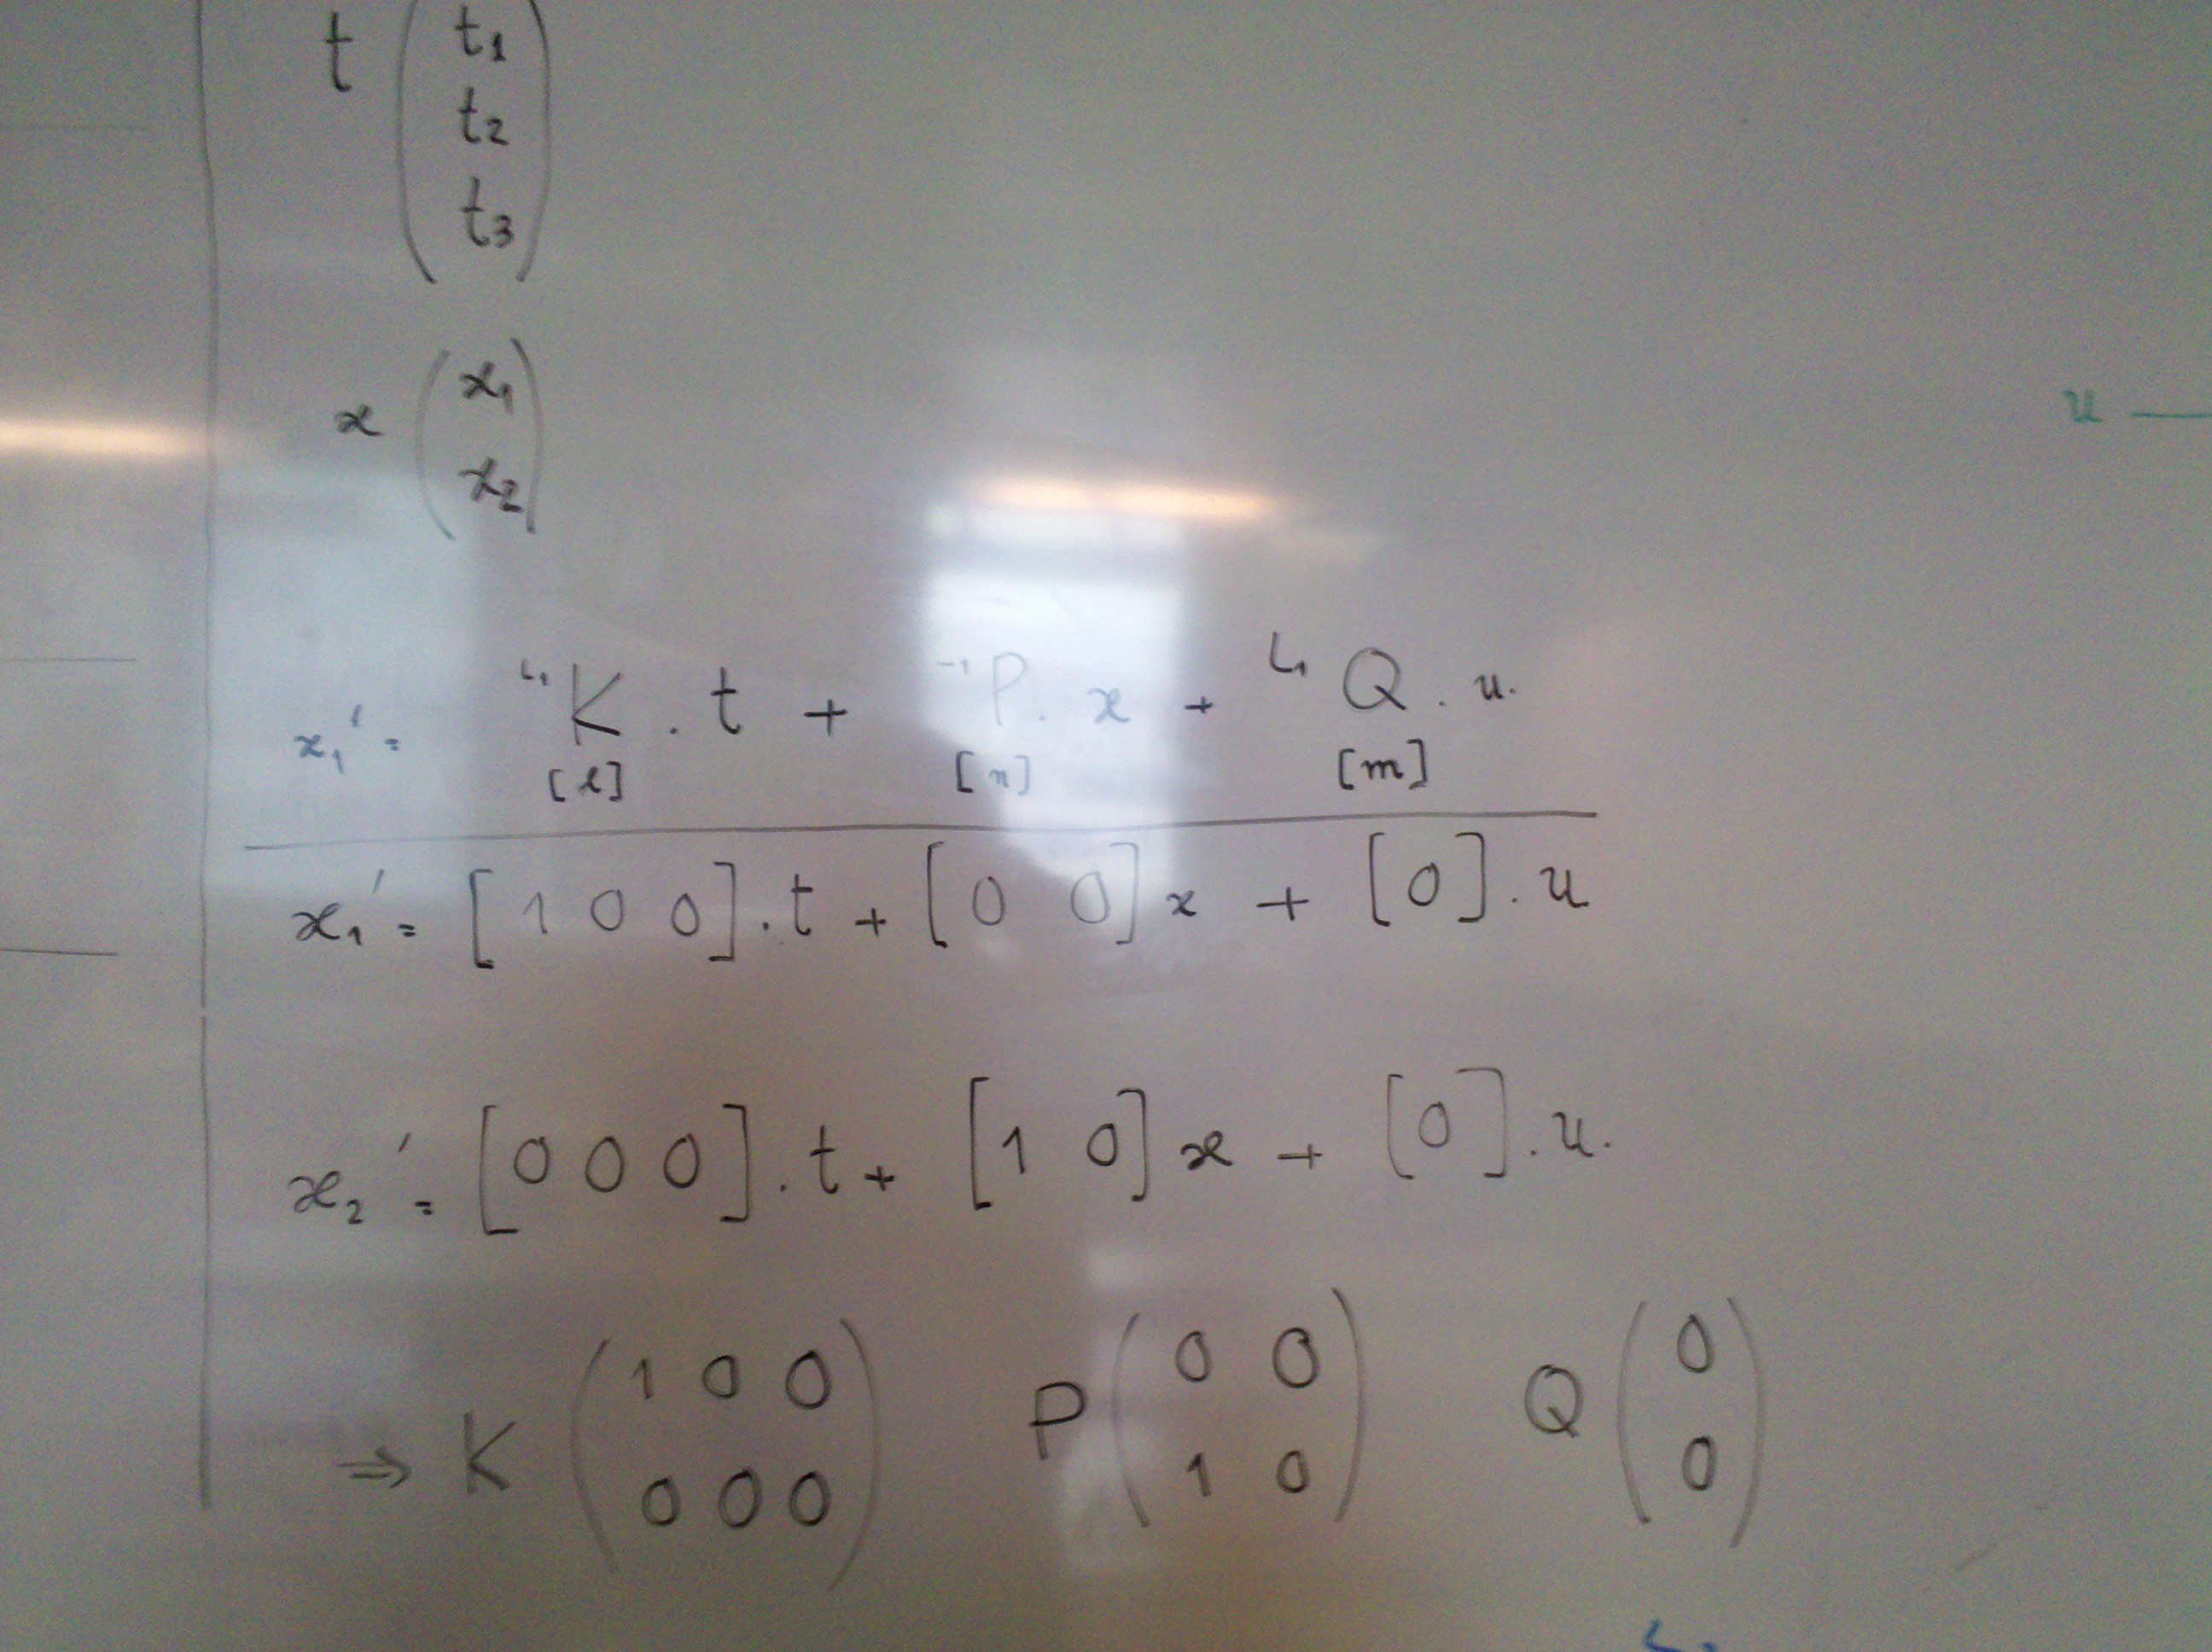 t ( t1
t2
t3 )
x ( x1
x2 )
x1' = L1 K . t + L1 P . x + L1 Q . u.
[l] [n] [m]
x1' = [1 0 0] . t + [0 0] x + [0] . u
x2' = [0 0 0] . t + [1 0] x + [0] . u.
⇒ K ( 1 0 0 ) P ( 0 0 ) Q ( 0 )
( 0 0 0 ) ( 1 0 ) ( 0 )
u —